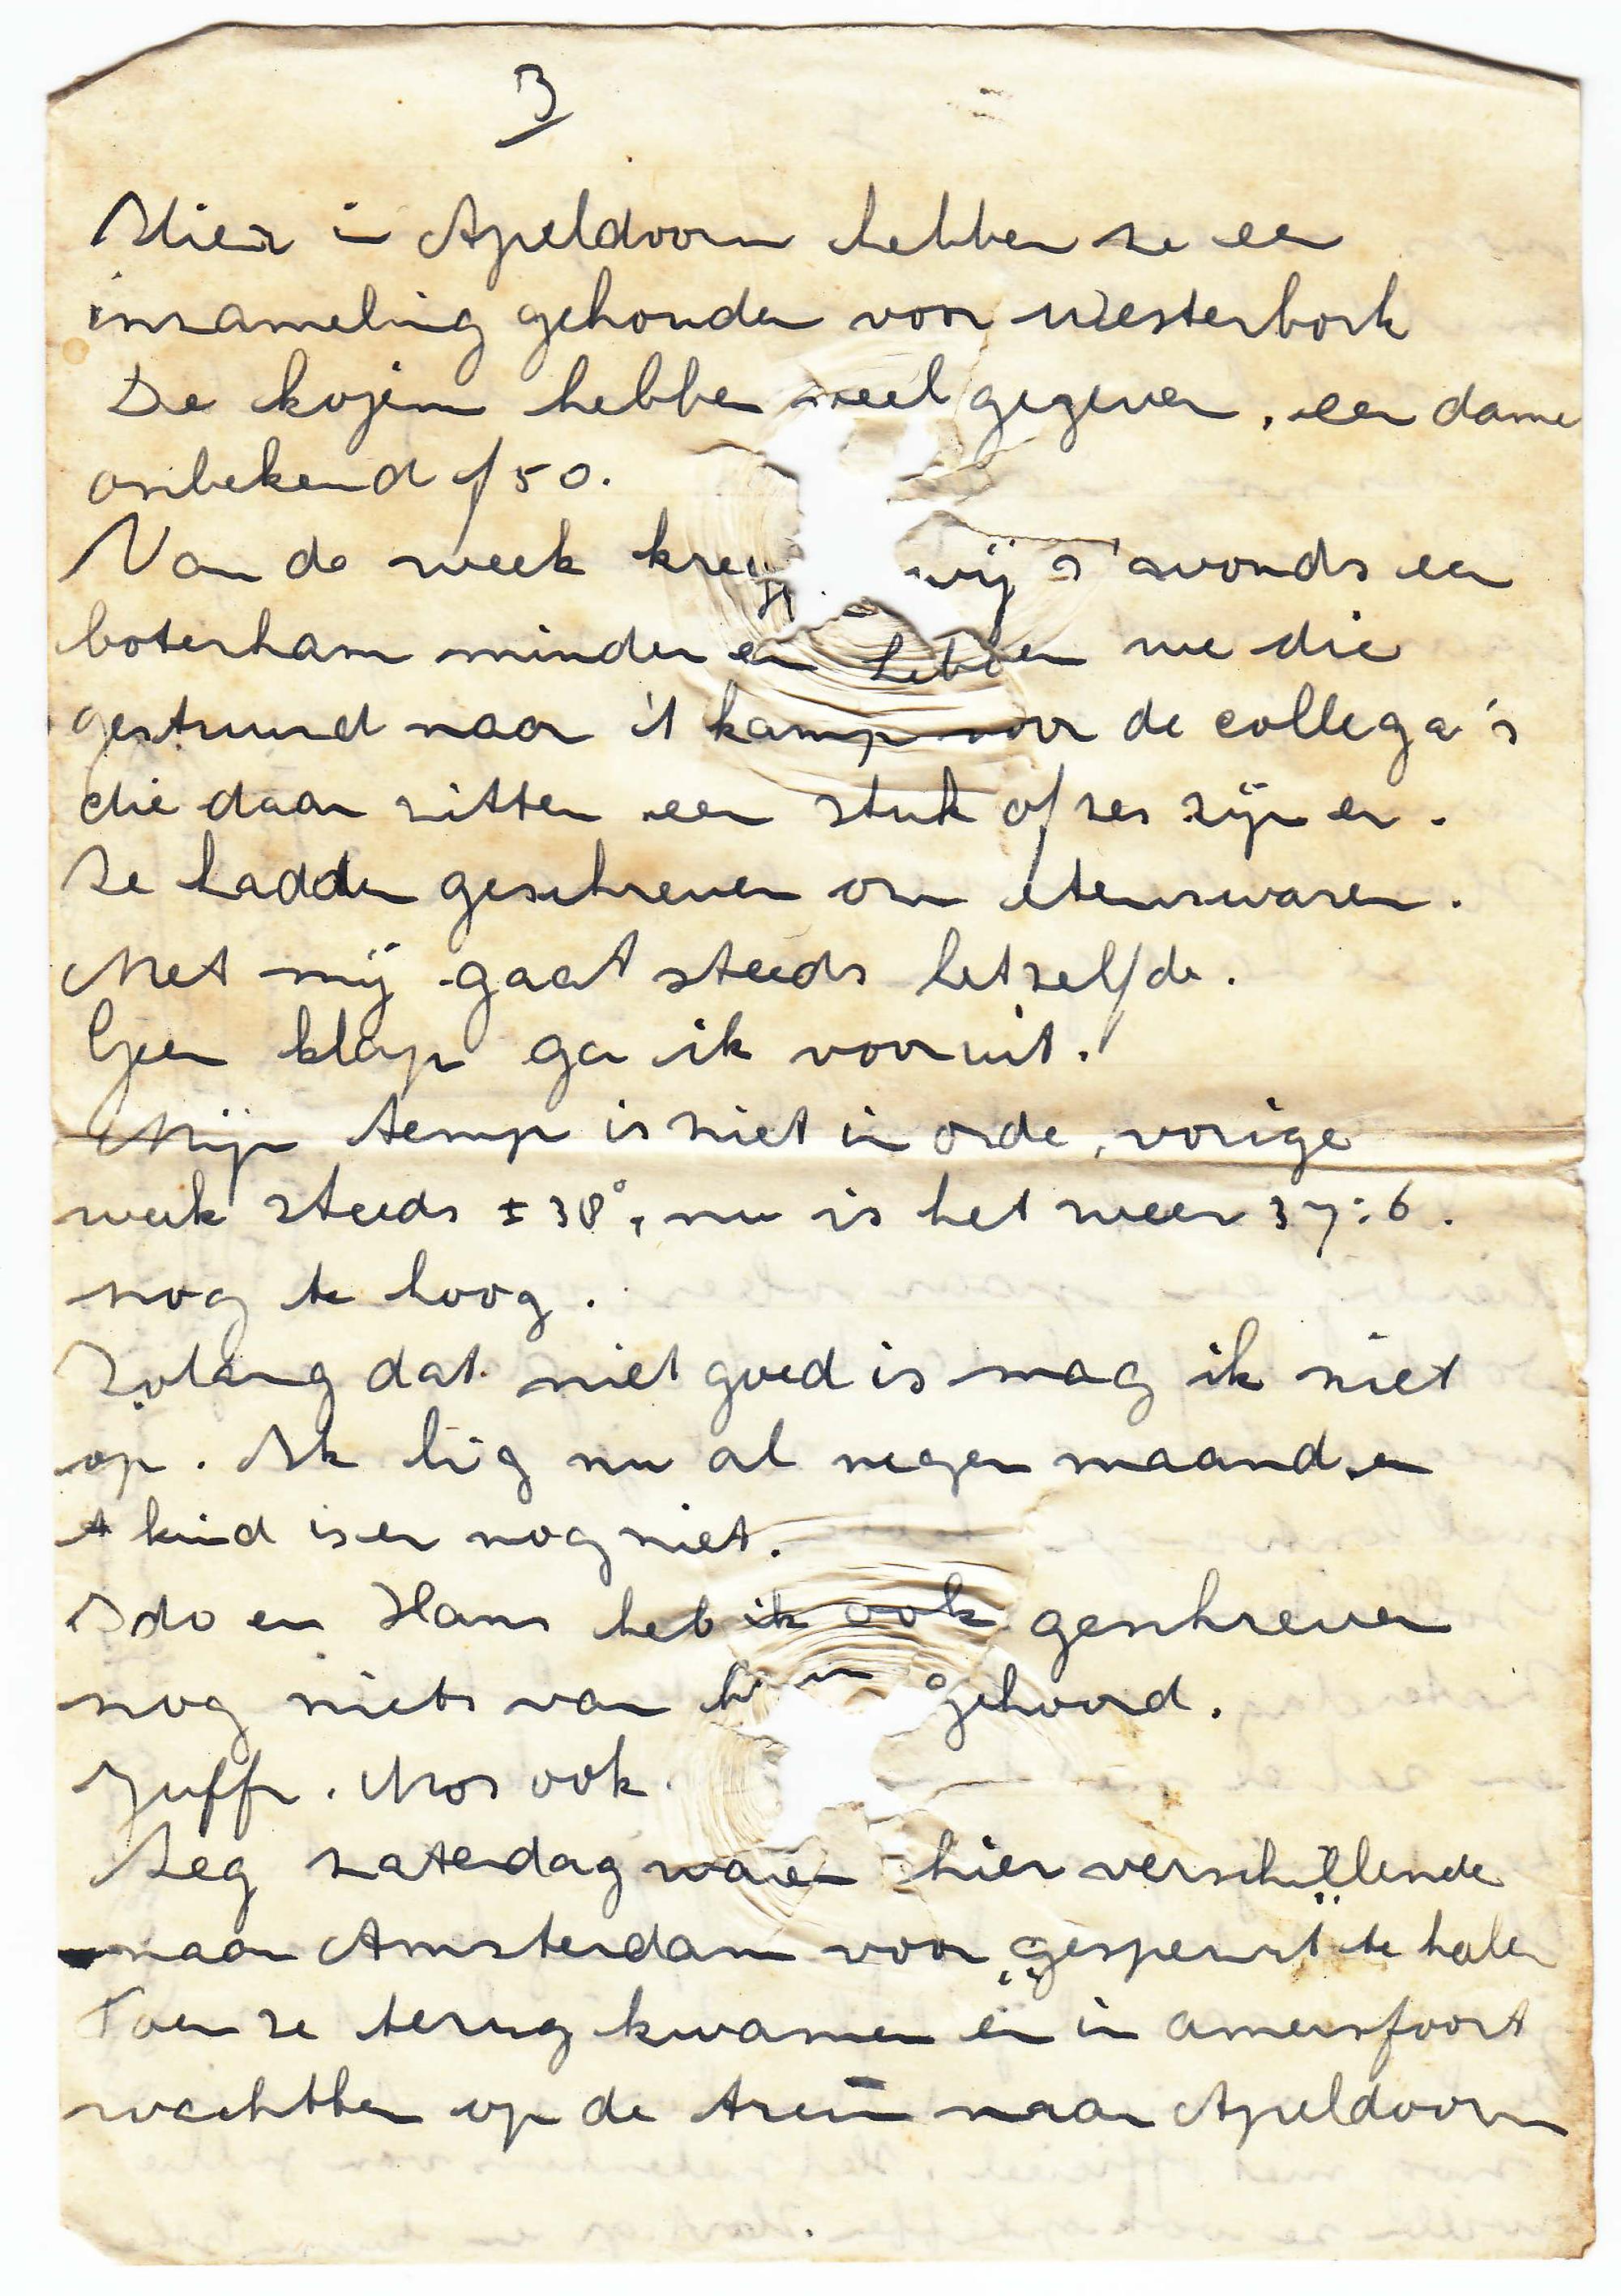 3
Hier in Apeldoorn hebben ze een
inzameling gehouden voor Westerbork
De kojem hebben veel gegeven, een dame
onbekend f 50.
Van de week kregen wij s'avonds een
boterham minder en hebben we die
gestuurd naar 't kamp voor de collega's
die daar zitten een stuk of zes zijn er.
Ze hadden geschreven om etenswaren.
Met mij gaat steeds hetzelfde.
Geen klap ga ik vooruit.
Mijn temp is niet in orde, vorige
week steeds ± 38°, nu is het weer 37:6.
nog te hoog.
Zolang dat niet goed is mag ik niet
op. Ik lig nu al negen maanden
t kind is er nog niet.
Ido en Hans heb ik ook geschreven
nog niets van hun gehoord.
Juffr. Mos ook.
Zeg zaterdag waren hier verschillende
naar Amsterdam voor „gesperrt" te halen
Toen ze terug kwamen en in amersfoort
wachtten op de trein naar Apeldoorn